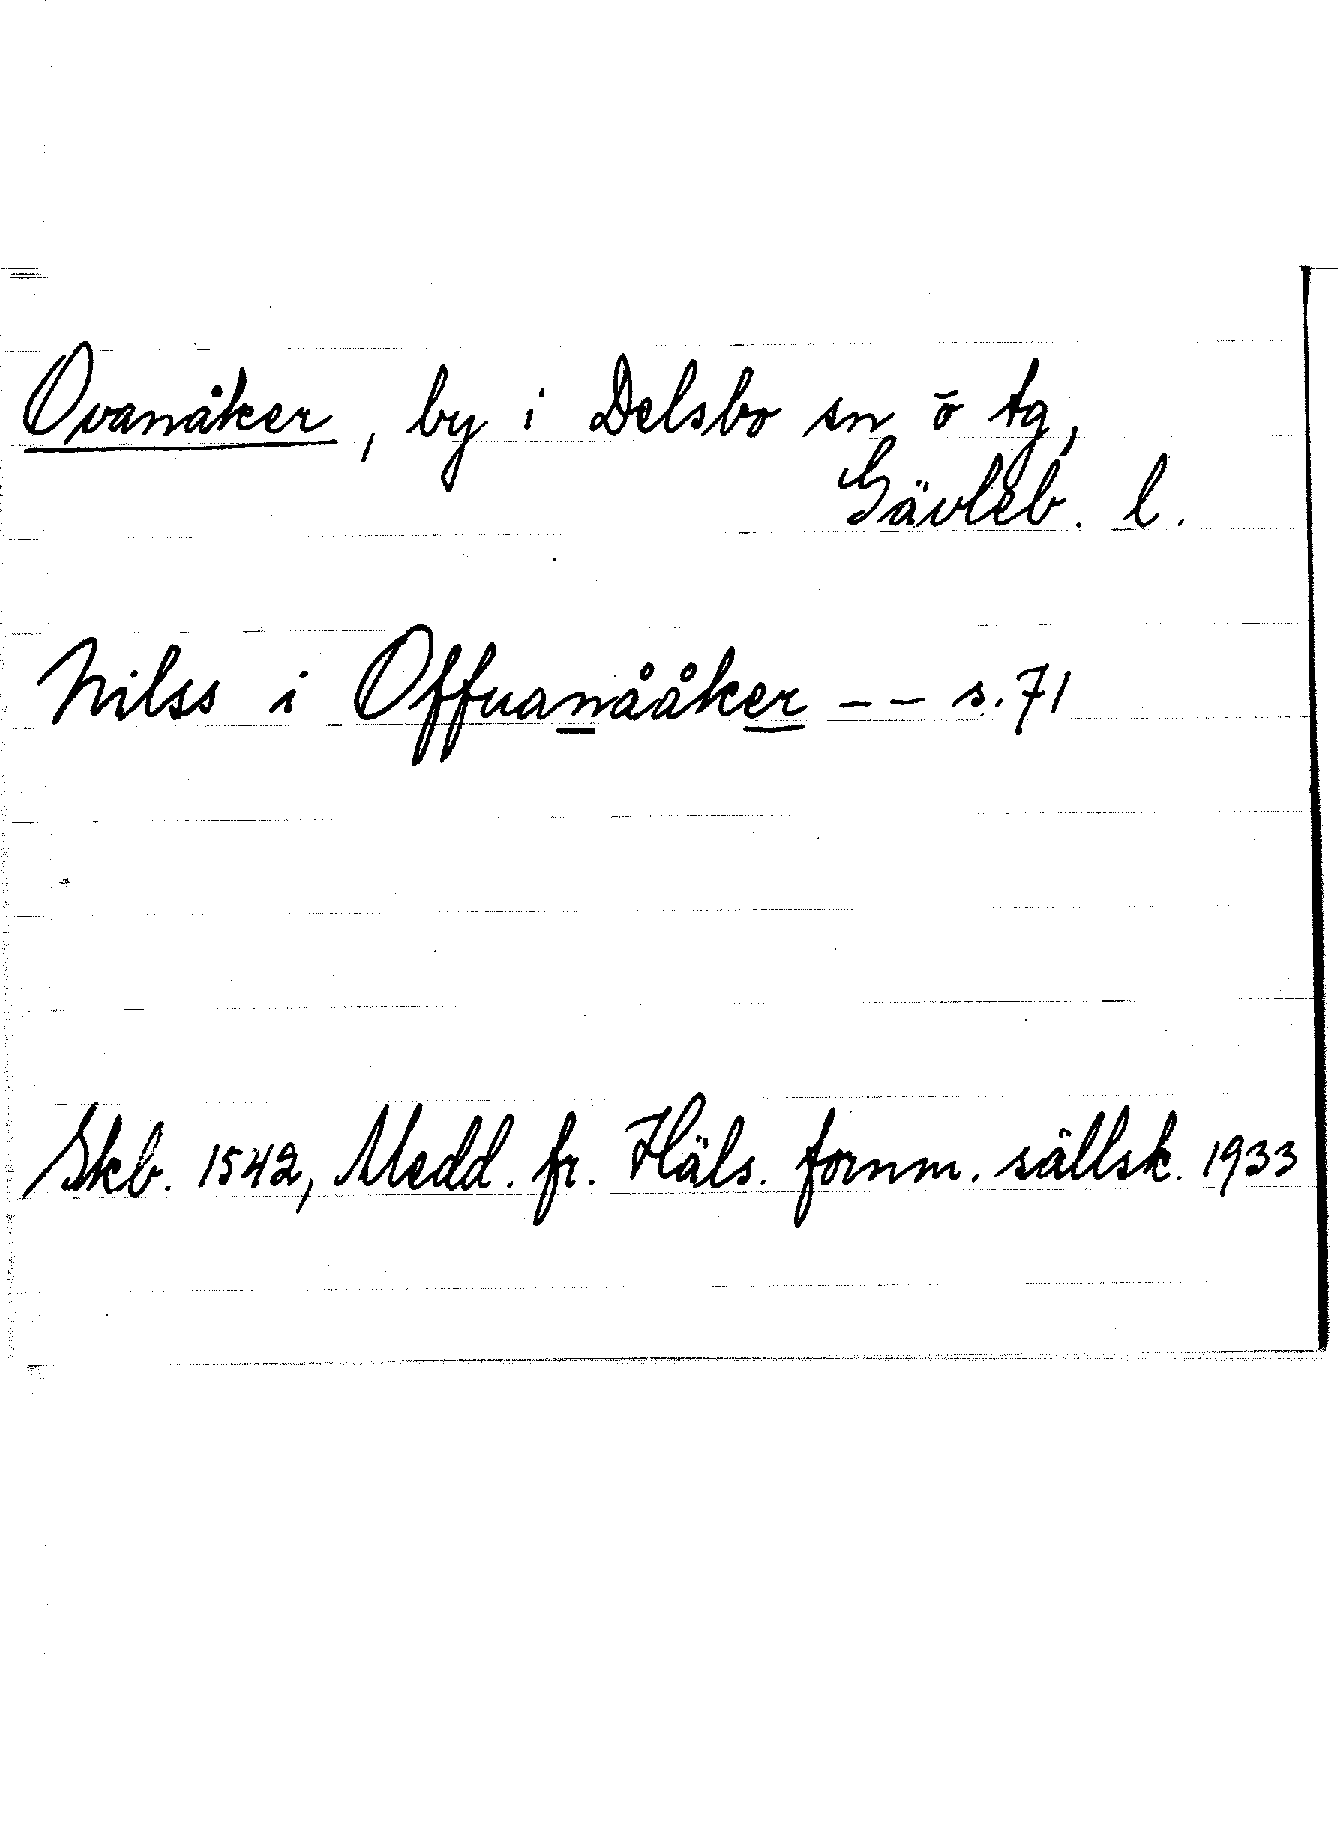 Ovanåker, by i Delsbo sn o tg,
Gävleb. l.
Nilss i Offuanååker -- s. 71
Skb. 1542, Medd. fr. Häls. fornm. sällsk. 1933